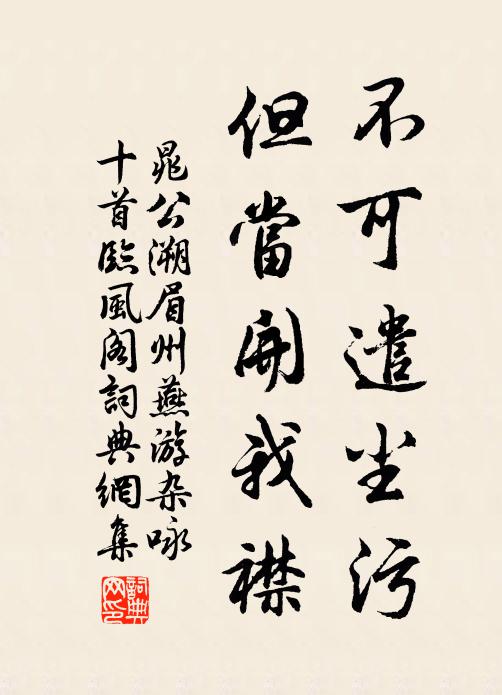 不可遣尘污
但當開我襟
晁公溯眉州燕游杂咏
十首臨風阁詞典網集